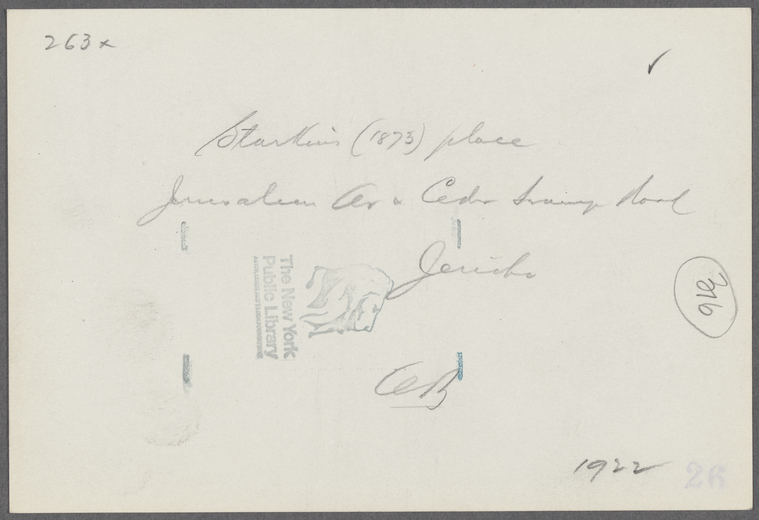 263x
✓
Starkins (1873) place
Jerusalem Av & Cedar Swamp Road
Jericho
The New York
Public Library
916
1922
26